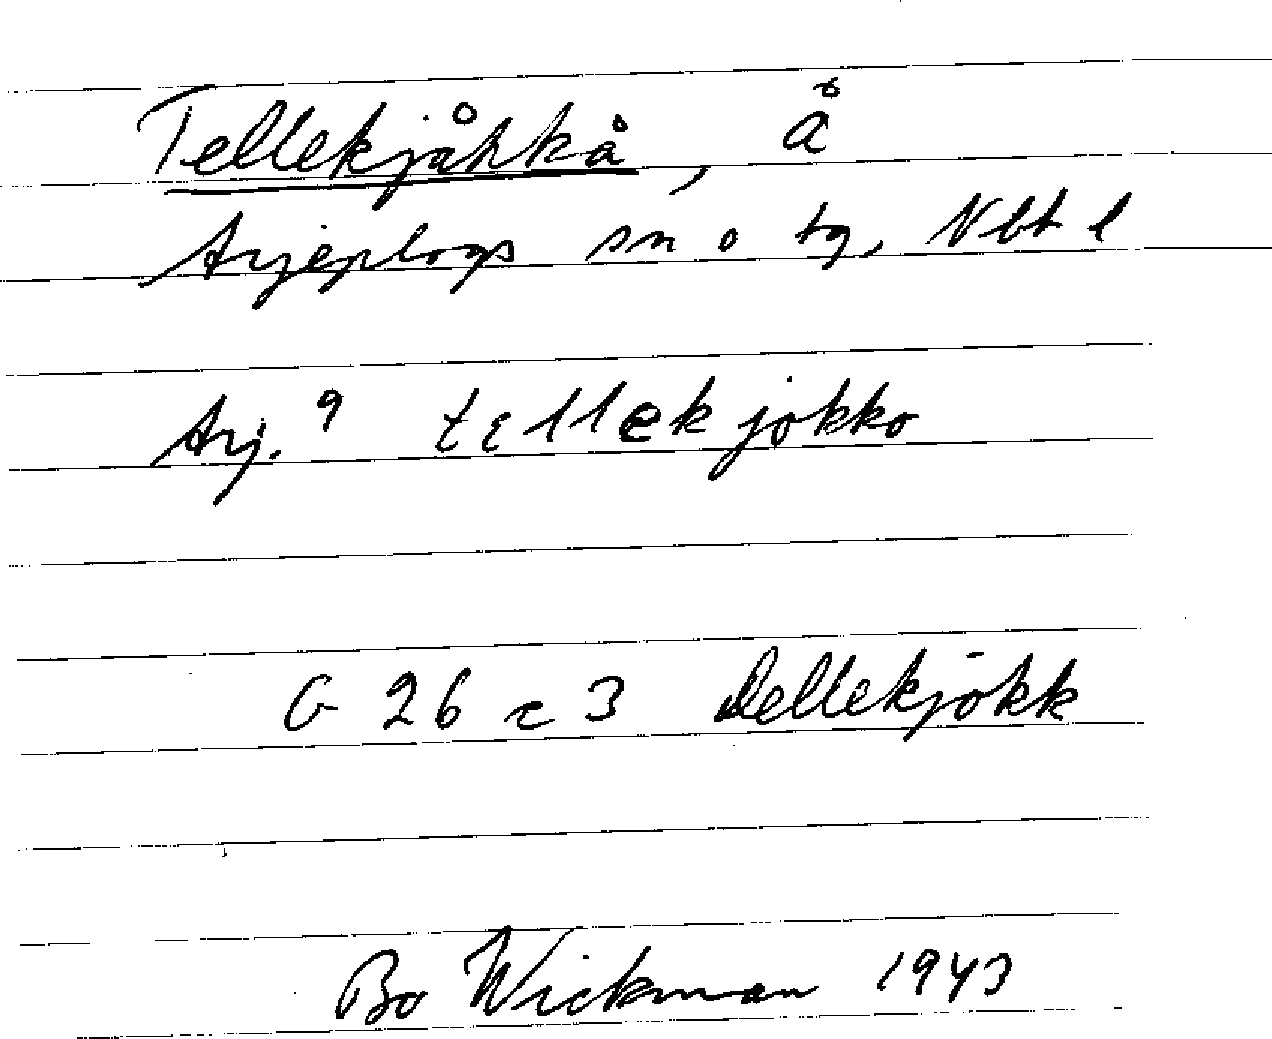 Tellekjåhkå, å
Arjeplogs sn o tg, Nbt l
Arj. 9 tɛllekjokko
G 26 c 3 Dellekjokk
Bo Wickman 1943